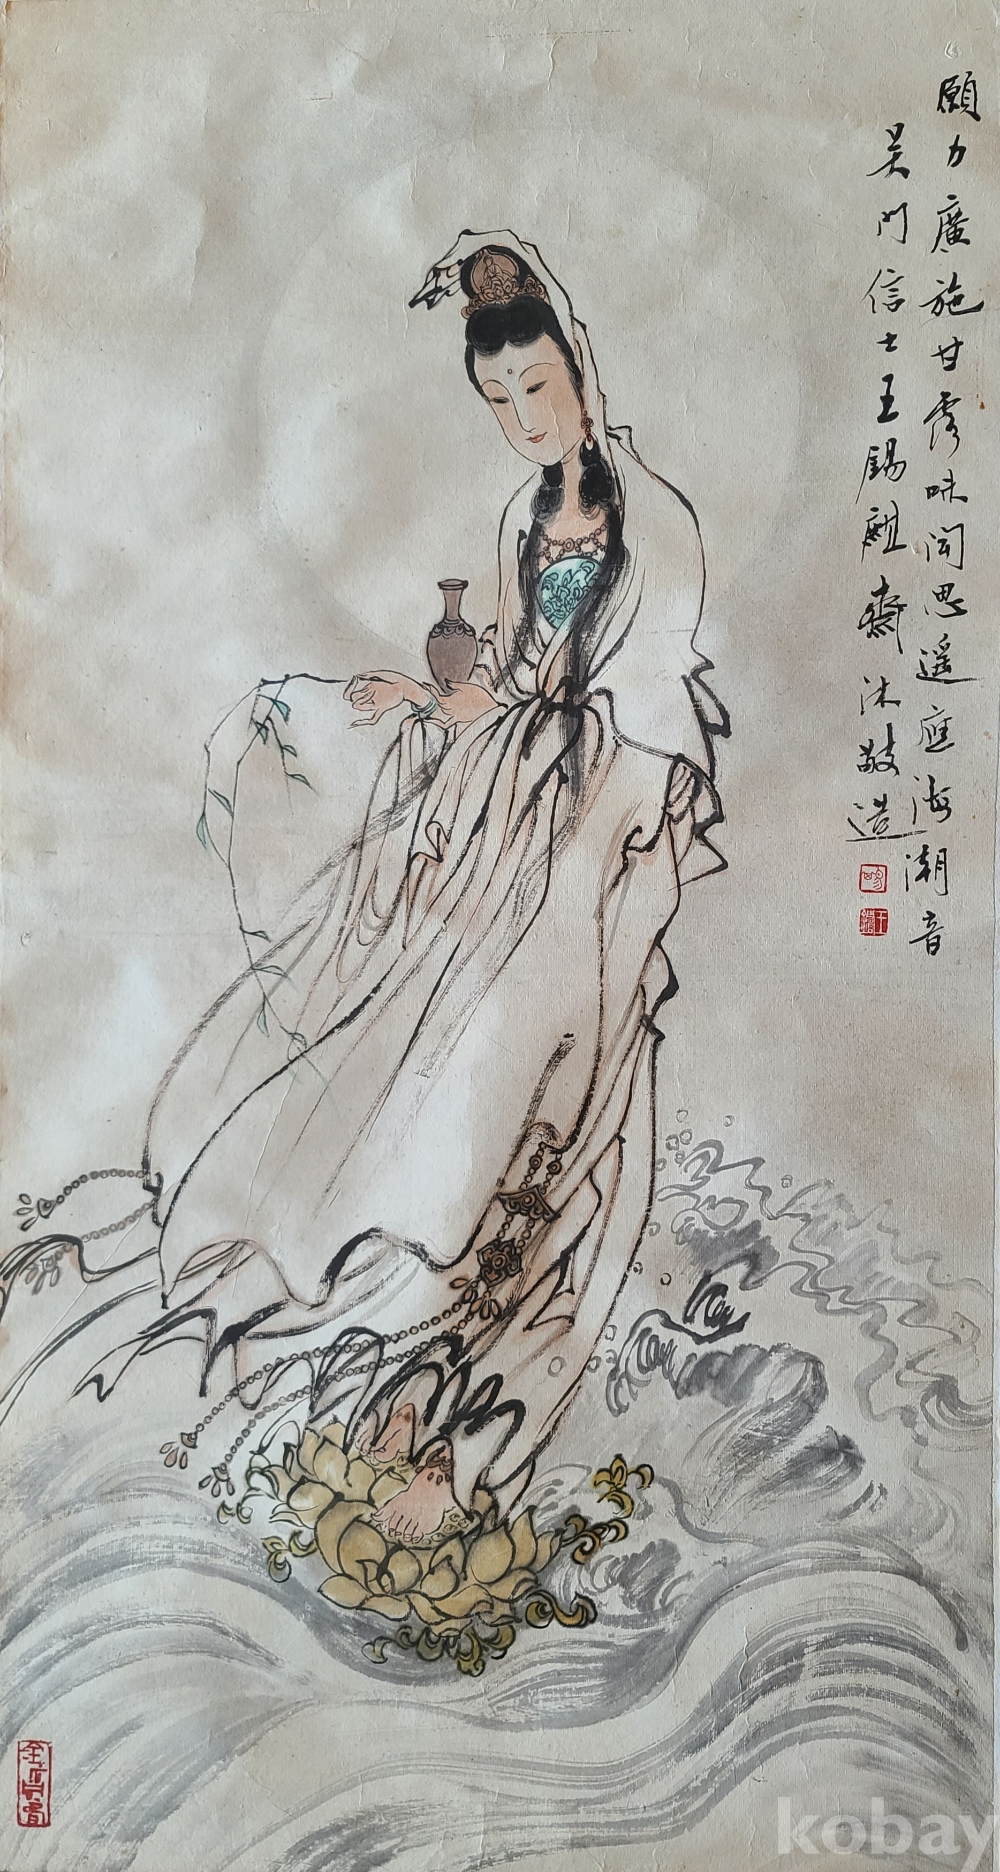 願力廣施甘露味聞思遥應海潮音
吳門信士王錫麒齋沐敬造
kobay